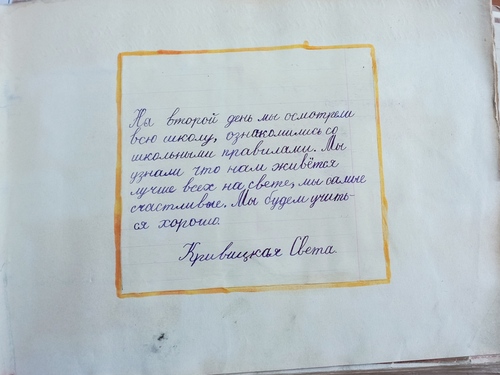 На второй день мы осмотрели
всю школу, ознакомились со
школьными правилами. Мы
узнали что нам живётся
лучше всех на свете, мы самые
счастливые. Мы будем учить-
ся хорошо.
Кривицкая Света.